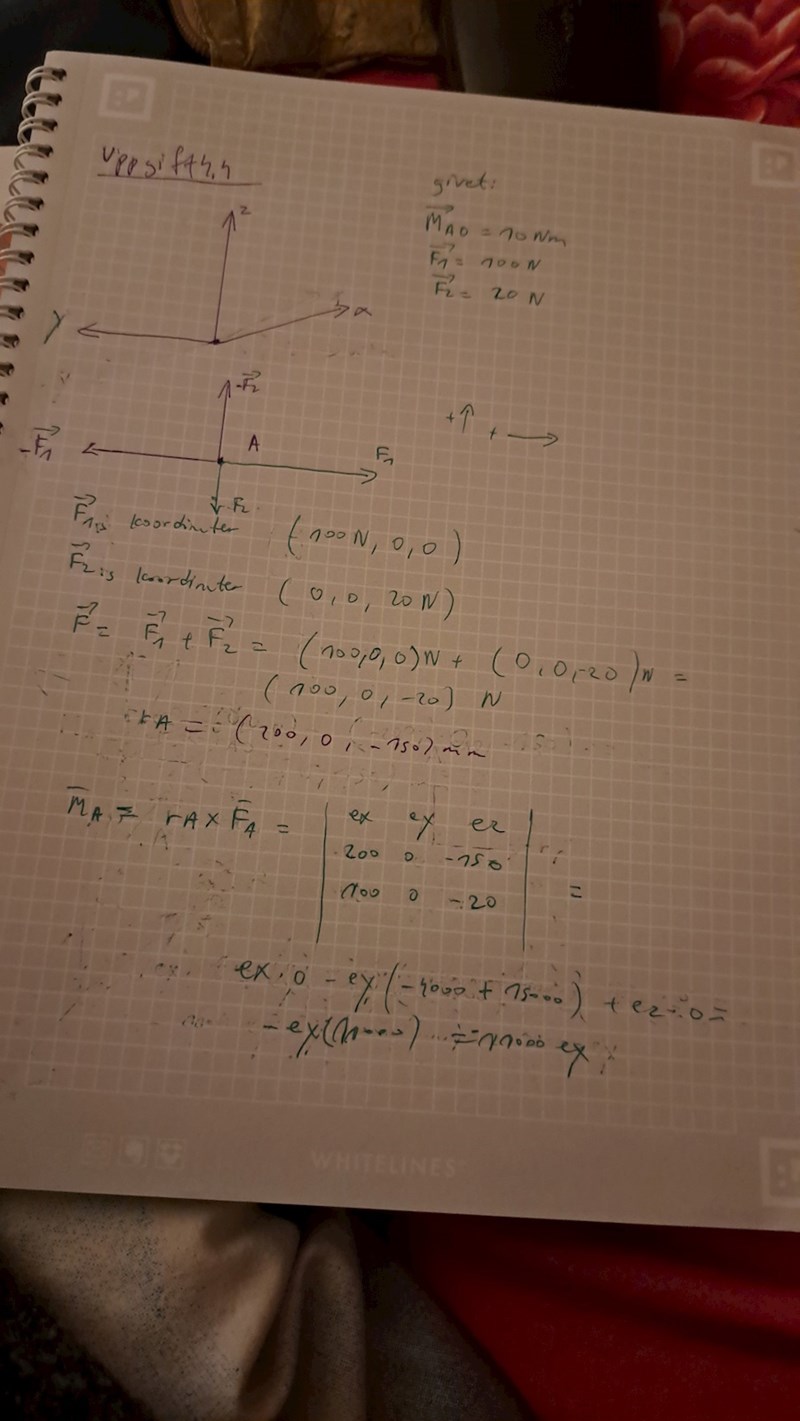 Uppgift 4.4
givet:
M⃗AO = 10 Nm
F⃗1 = 100 N
F⃗2 = 20 N
z
x
y
-F⃗2
-F⃗1
A
F1
F2
+↑ + →
F⃗1:s koordinater (100N, 0, 0)
F⃗2:s koordinater (0, 0, 20N)
F⃗ = F⃗1 + F⃗2 = (100,0,0)N + (0,0,-20)N =
(100, 0, -20) N
rA = (200, 0, -150) mm
M̄A = rA × F̄A = | ex ey ez
200 0 -150
100 0 -20 | =
ex·0 - ey(-4000 + 15000) + ez·0 =
-ey(11000) = -11000 ey
WHITELINES